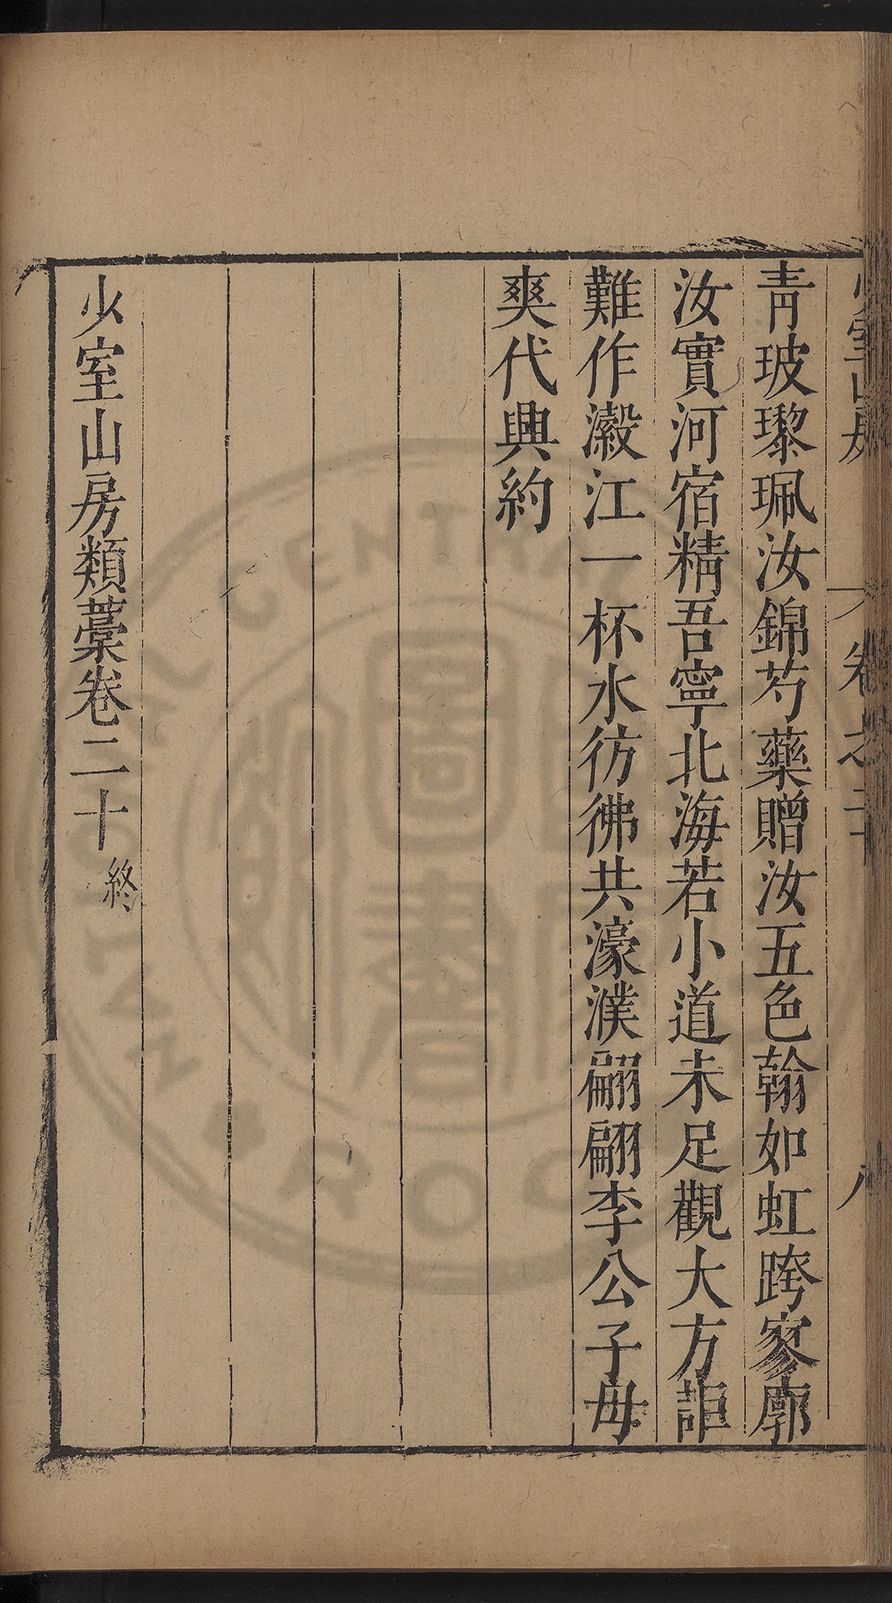 青玻瓈珮汝錦芍藥贈汝五色翰如虹跨寥廓
汝實河宿精吾寧北海若小道未足觀大方詎
難作瀔江一杯水彷彿共濠濮翩翩李公子毋
爽代興約
少室山房類藁卷二十終